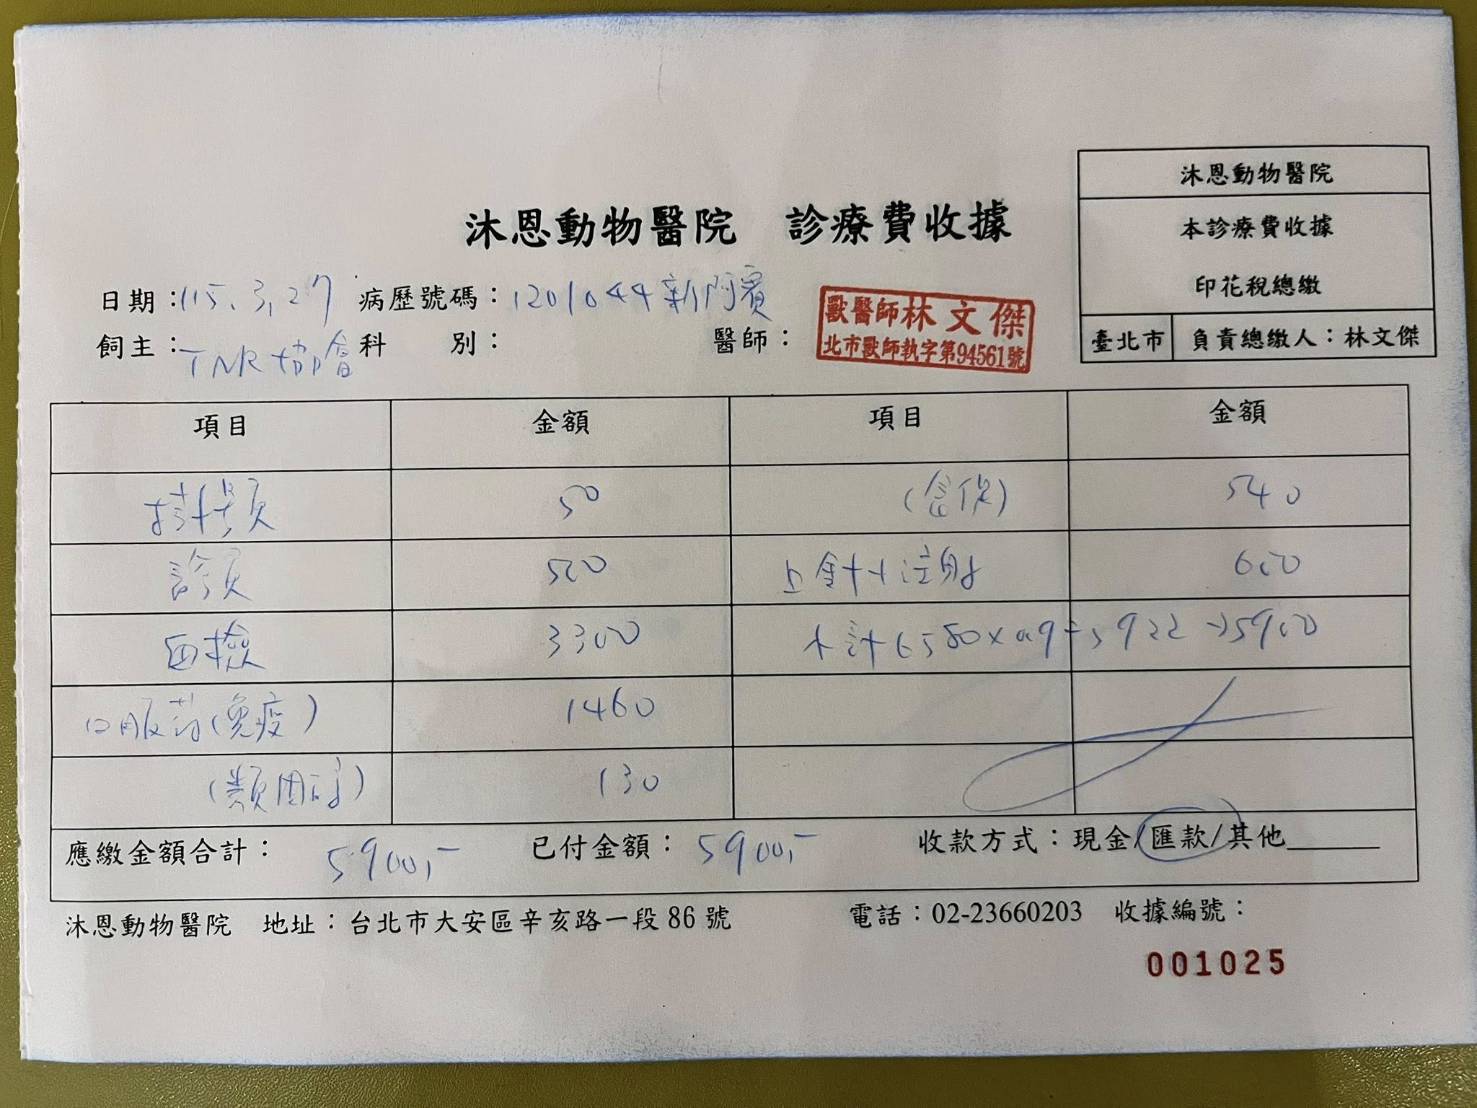 沐恩動物醫院
本診療費收據
印花稅總繳
臺北市 負責總繳人：林文傑
沐恩動物醫院 診療費收據
日期：115.3.27 病歷號碼：1201044新阿賓
飼主：TNR協會 科 別： 醫師：
獸醫師林文傑
北市獸師執字第94561號
項目 金額 項目 金額
掛號費 50 540
診費 500 上針+注射 600
血檢 3300 小計6580×0.9=5922→5900
口服葯(免疫) 1460
(類固醇) 130
應繳金額合計：5900,- 已付金額：5900,- 收款方式：現金/匯款/其他
沐恩動物醫院 地址：台北市大安區辛亥路一段86號 電話：02-23660203 收據編號：
001025